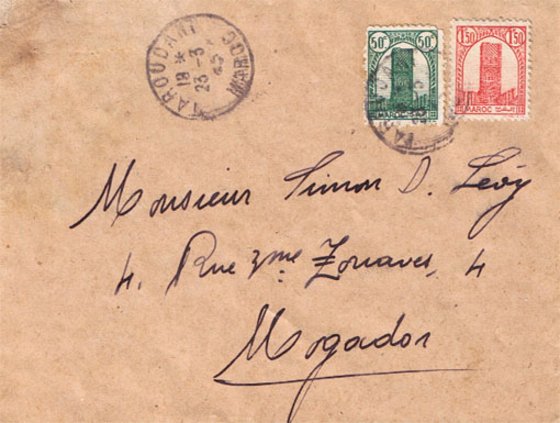 TAROUDANT MAROC
18 *
23 -3
45
50ᶜ 50ᶜ
MAROC
1ᶠ50 1ᶠ50
MAROC
Monsieur Simon D. Lévy
4. Rue 3me Zouaves, 4
Mogador